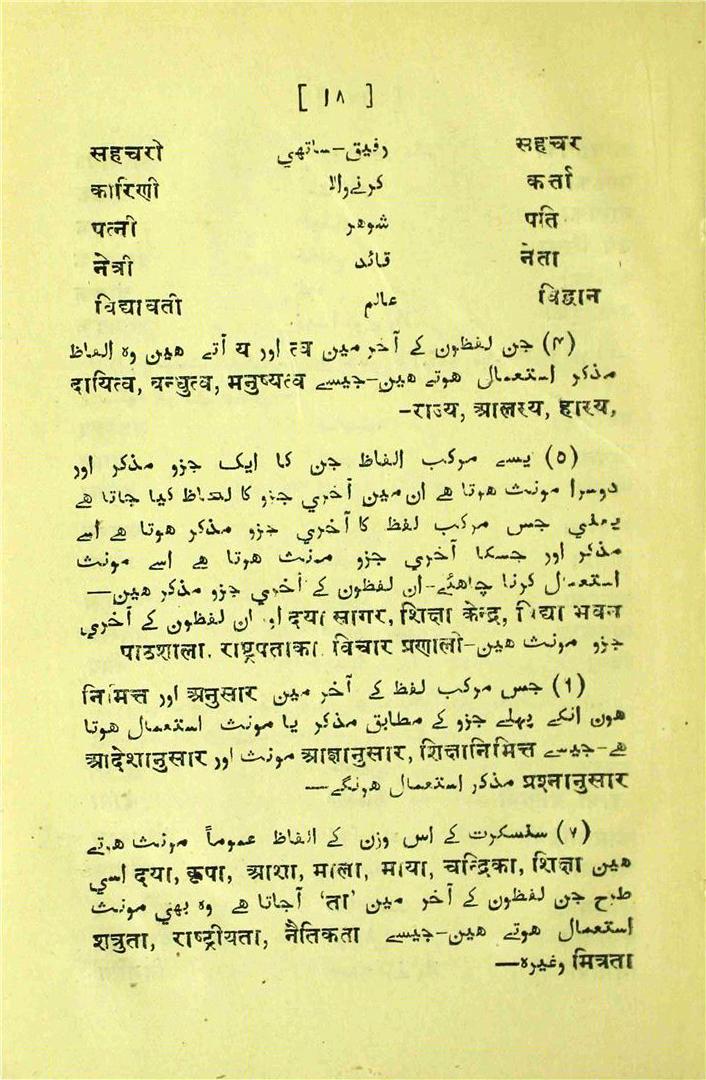 [ ۱۸ ]
सहचर رفیق-ساتھي सहचरी
कर्त्ता کرنےوالا कारिणी
पति شوھر पत्नी
नेता قائد नेत्री
विद्वान عالم विद्यावती
(۴) جن لفظون کے آخر مین त्व اور य آتے ھین وہ الفاظ
مذکر استعمال ھوتے ھین-جیسے दायित्व, बन्धुत्व, मनुष्यत्व
राज्य, आलस्य, हास्य,-
(٥) یسے مرکب الفاظ جن کا ایک جزو مذکر اور
دوسرا مونث ھوتا ھے ان مین آخري جزو کا لحاظ کیا جاتا ھے
یعلي جس مرکب لفظ کا آخري جزو مذکر ھوتا ھے اسے
مذکر اور جسکا آخري جزو مونث ھوتا ھے اسے مونث
استعمال کرنا چاھئے-ان لفظون کے آخري جزو مذکر ھین—
दया सागर, शिक्षा केन्द्र, विद्या भवन او ان لفظون کے آخري
جزو مونث ھین-पाठशाला. राष्ट्रपताका. विचार प्रणाली
(٦) جس مرکب لفظ کے آخر مین अनुसार اور निमित्त
ھون انکے پہلے جزو کے مطابق مذکر یا مونث استعمال ھوتا
ھے-جیسے आज्ञानुसार, शिक्षानिमित्त مونث اور आदेशानुसार
प्रश्नानुसार مذکر استعمال ھونگے—
(۷) سنسکرت کے اس وزن کے الفاظ عموماً مونث ھوتے
ھین दया, कृपा, आशा, माला, माया, चन्द्रिका, शिक्षा اسي
طرح جن لفظون کے آخر مین 'ता' آجاتا ھے وہ بھي مونث
استعمال ھوتے ھین-جیسے शत्रुता, राष्ट्रीयता, नैतिकता
मित्रता وغیرہ—